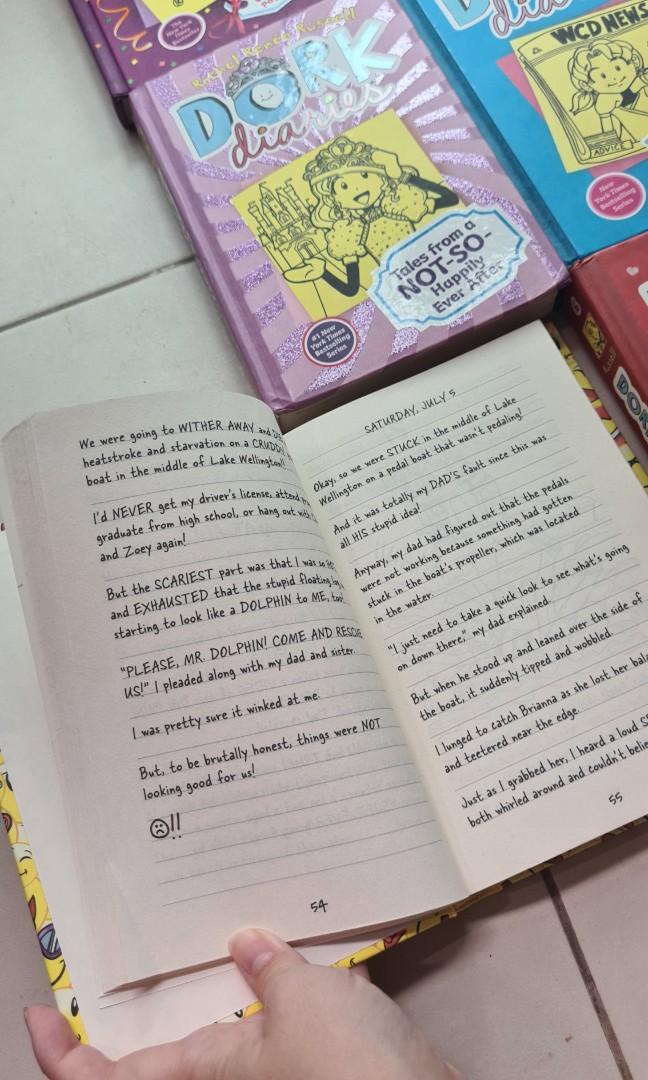 The
New
York Times
Bestselling
Series
Rachel Renée Russell
DORK
diaries
Tales from a
NOT-SO-
Happily
Ever After
#1 New
York Times
Bestselling
Series
WCD NEWS
ADVICE
New
York Times
Bestselling
Series
We were going to WITHER AWAY and
heatstroke and starvation on a CRUDDY
boat in the middle of Lake Wellington!!
I'd NEVER get my driver's license, attend
graduate from high school, or hang out with
and Zoey again!
But the SCARIEST part was that I was so
and EXHAUSTED that the stupid floating
starting to look like a DOLPHIN to ME, too!
"PLEASE, MR. DOLPHIN! COME AND RESCUE
US!" I pleaded along with my dad and sister.
I was pretty sure it winked at me.
But, to be brutally honest, things were NOT
looking good for us!
☹!!
54
SATURDAY, JULY 5
Okay, so we were STUCK in the middle of Lake
Wellington on a pedal boat that wasn't pedaling!
And it was totally my DAD'S fault since this was
all HIS stupid idea!
Anyway, my dad had figured out that the pedals
were not working because something had gotten
stuck in the boat's propeller, which was located
in the water.
"I just need to take a quick look to see what's going
on down there," my dad explained.
But when he stood up and leaned over the side of
the boat, it suddenly tipped and wobbled.
I lunged to catch Brianna as she lost her
and teetered near the edge.
Just as I grabbed her, I heard a loud
both whirled around and couldn't
55